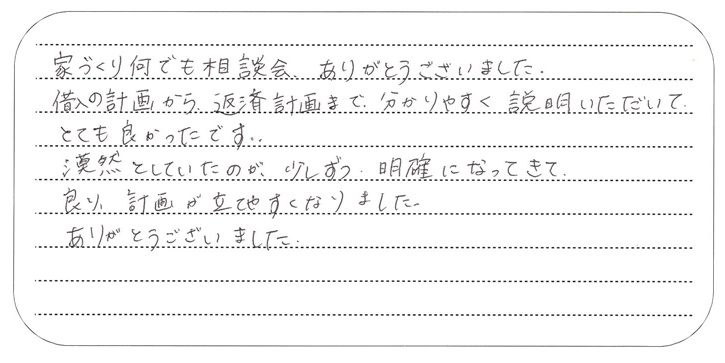 家づくり何でも相談会、ありがとうございました。
借入の計画から、返済計画まで、分かりやすく説明いただいて、
とても良かったです。
漠然としていたのが、少しずつ、明確になってきて、
良り、計画が立てやすくなりました。
ありがとうございました。